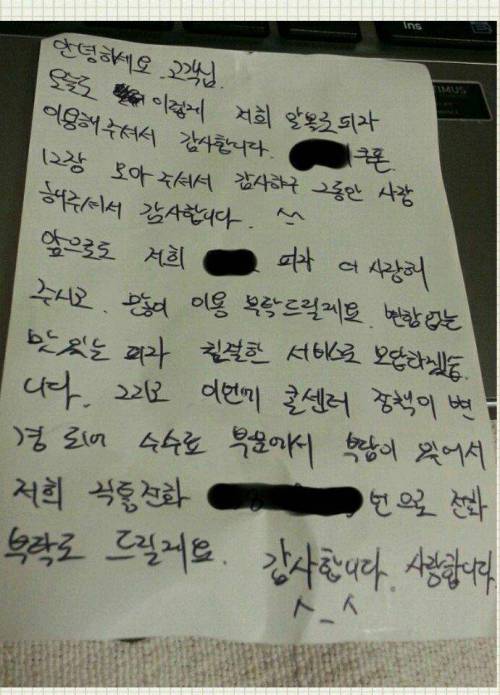 Ins
안녕하세요 고객님.
오늘도 이렇게 저희 알볼로피자
이용해주셔서 감사합니다. 쿠폰
12장 모아주셔서 감사하구 그동안 사랑
해주셔서 감사합니다. ^^
앞으로도 저희 피자 더 사랑해
주시고. 많이 이용 부탁드릴게요. 변함없는
맛있는 피자 친절한 서비스로 보답하겠습
니다. 그리고 이번에 콜센터 정책이 변
경 되어 수수료 부분에서 부담이 있어서
저희 직통전화 번으로 전화
부탁도 드릴게요. 감사합니다. 사랑합니다.
^_^